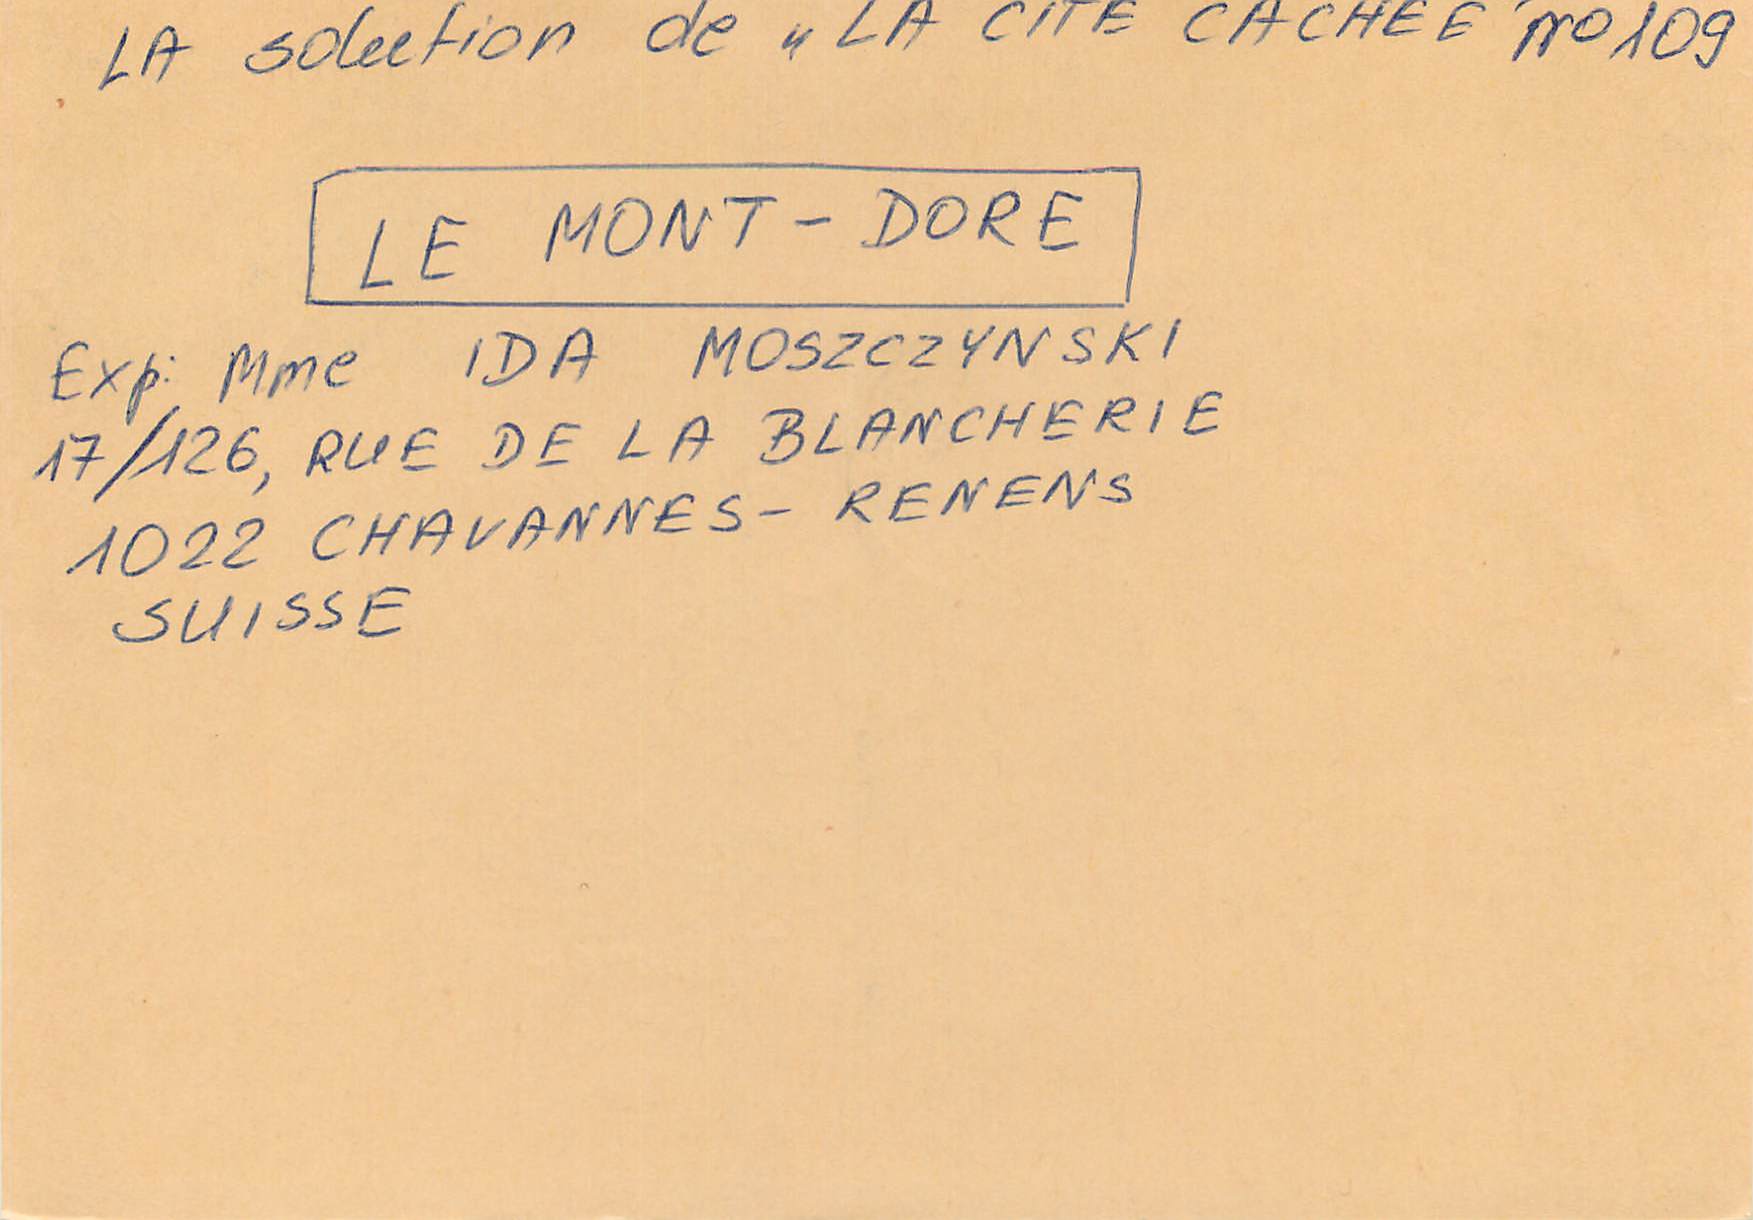 LA solution de „LA CITÉ CACHÉE" no 109
LE MONT-DORE
Exp: Mme IDA MOSZCZYNSKI
17/126, RUE DE LA BLANCHERIE
1022 CHAVANNES-RENENS
SUISSE